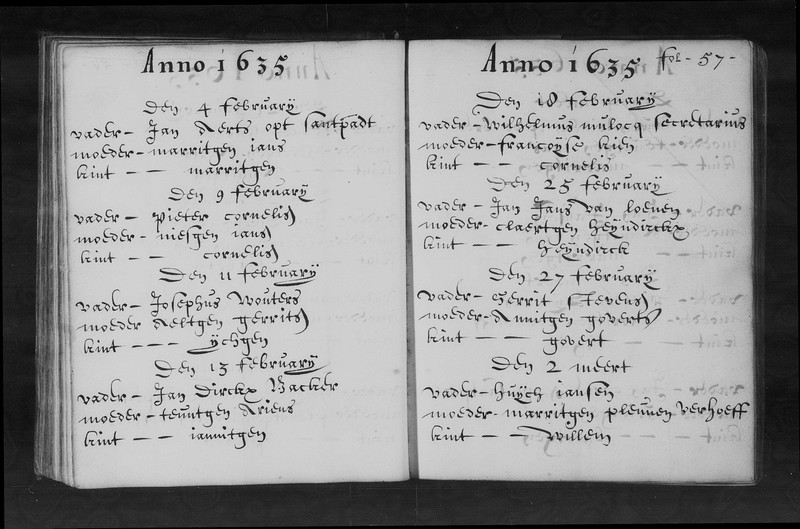 Anno 1635
Den 4 februarÿ
vader - Jan Aerts opt santpadt
moeder - marritgen ians
kint - - marritgen
Den 9 februarÿ
vader - pieter cornelis
moeder - niesgen ians
kint - - cornelis
Den 11 februarÿ
vader - Josephus Wouters
moeder Aeltgen gerrits
kint - - - ÿchgen
Den 13 februarÿ
vader - Jan Dirckx Backer
moeder - teuntgen Ariens
kint - - iannitgen
Anno 1635 fol - 57 -
Den 18 februarÿ
vader - Wilhelmus mulocq secretarius
moeder - francoÿse kien
kint - - cornelis
Den 25 februarÿ
vader - Jan Jans van loenen
moeder - claertgen heÿndirckx
kint - - heÿndirck
Den 27 februarÿ
vader - gerrit stevens
moeder - Annitgen goverts
kint - - govert
Den 2 meert
vader - huÿch iansen
moeder - marritgen pleunen verhoeff
kint - - willem